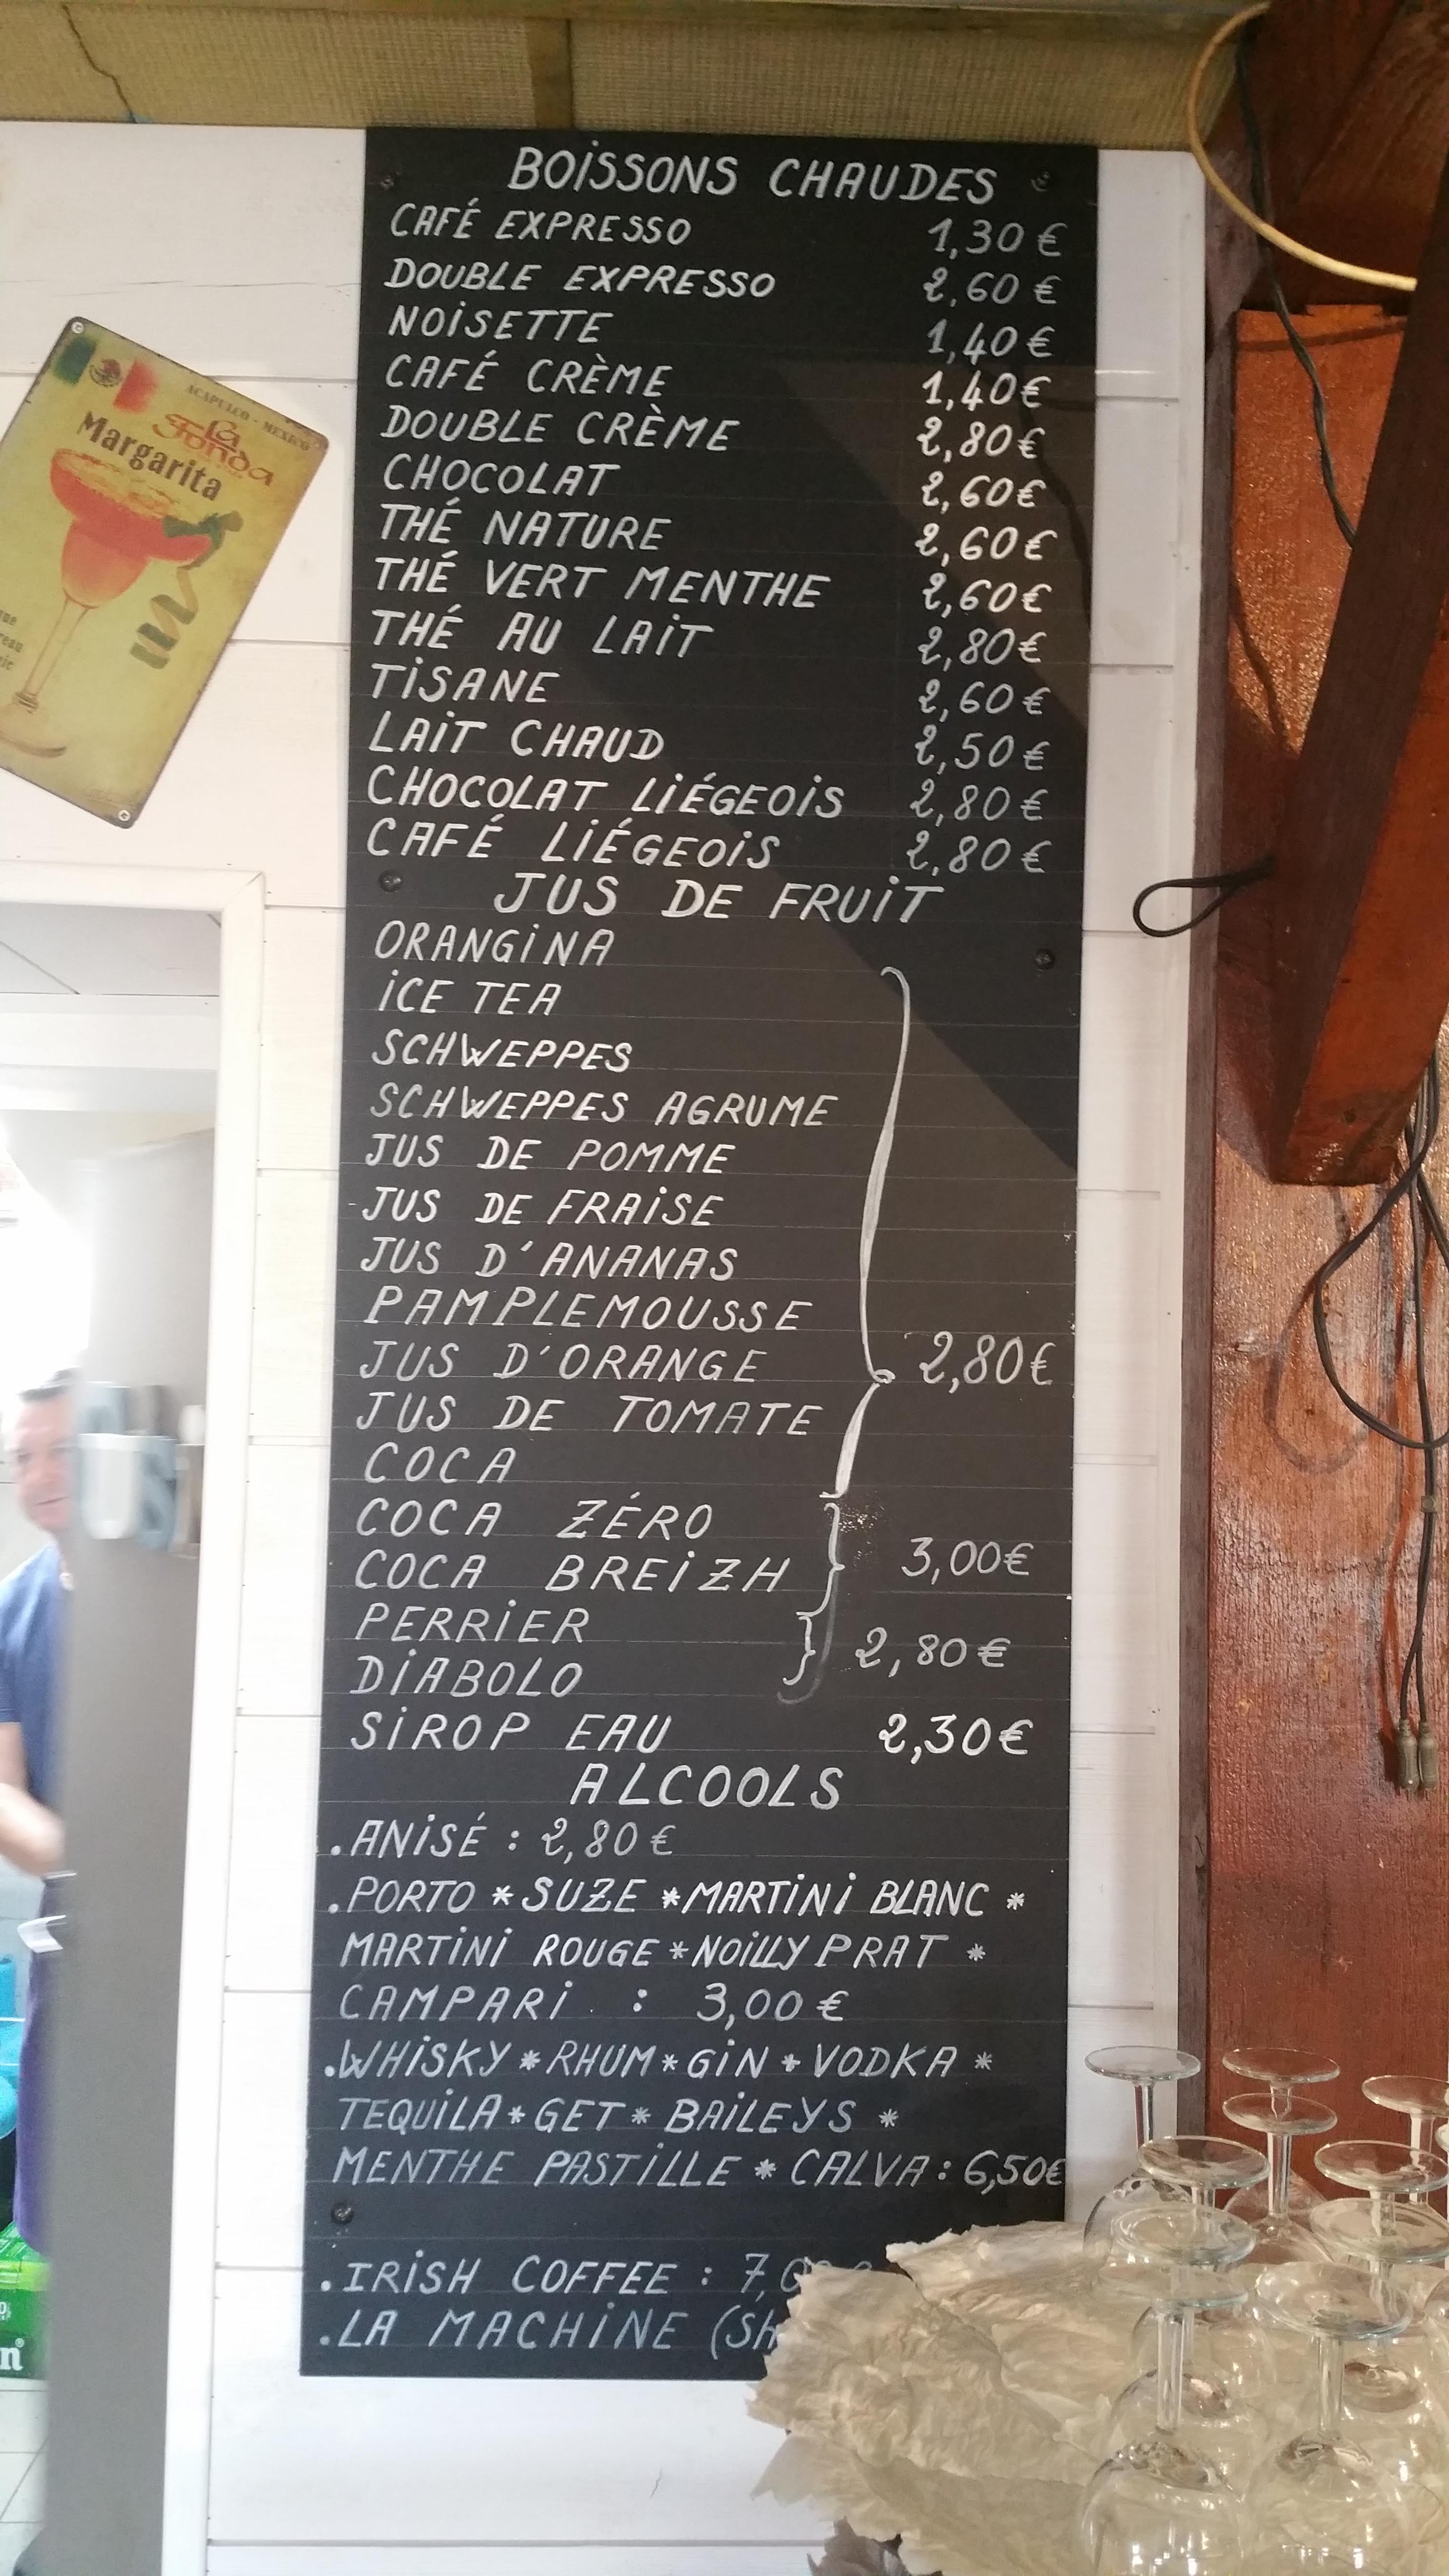 BOISSONS CHAUDES
CAFÉ EXPRESSO 1,30 €
DOUBLE EXPRESSO 2,60 €
NOISETTE 1,40 €
CAFÉ CRÈME 1,40 €
DOUBLE CRÈME 2,80 €
CHOCOLAT 2,60 €
THÉ NATURE 2,60 €
THÉ VERT MENTHE 2,60 €
THÉ AU LAIT 2,80 €
TISANE 2,60 €
LAIT CHAUD 2,50 €
CHOCOLAT LIÉGEOIS 2,80 €
CAFÉ LIÉGEOIS 2,80 €
JUS DE FRUIT
ORANGINA
ICE TEA
SCHWEPPES
SCHWEPPES AGRUME
JUS DE POMME
-JUS DE FRAISE
JUS D'ANANAS
PAMPLEMOUSSE
JUS D'ORANGE 2,80 €
JUS DE TOMATE
COCA
COCA ZÉRO
COCA BREIZH 3,00 €
PERRIER
DIABOLO 2,80 €
SIROP EAU 2,30 €
ALCOOLS
.ANISÉ : 2,80 €
.PORTO * SUZE * MARTINI BLANC *
MARTINI ROUGE * NOILLY PRAT *
CAMPARI : 3,00 €
.WHISKY * RHUM * GIN * VODKA *
TEQUILA * GET * BAILEYS *
MENTHE PASTILLE * CALVA : 6,50 €
.IRISH COFFEE : 7,
.LA MACHINE (SH
ACAPULCO - MEXICO
La Fonda
Margarita